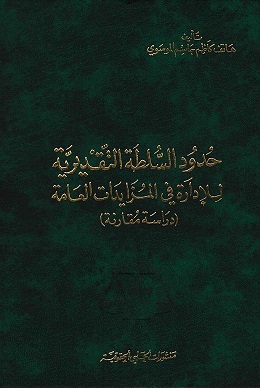 تأليف
هاتف كاظم جاسم الموسوي
حدود السلطة التقديرية
للإدارة في المزايدات العامة
(دراسة مقارنة)
منشورات الحلبي الحقوقية